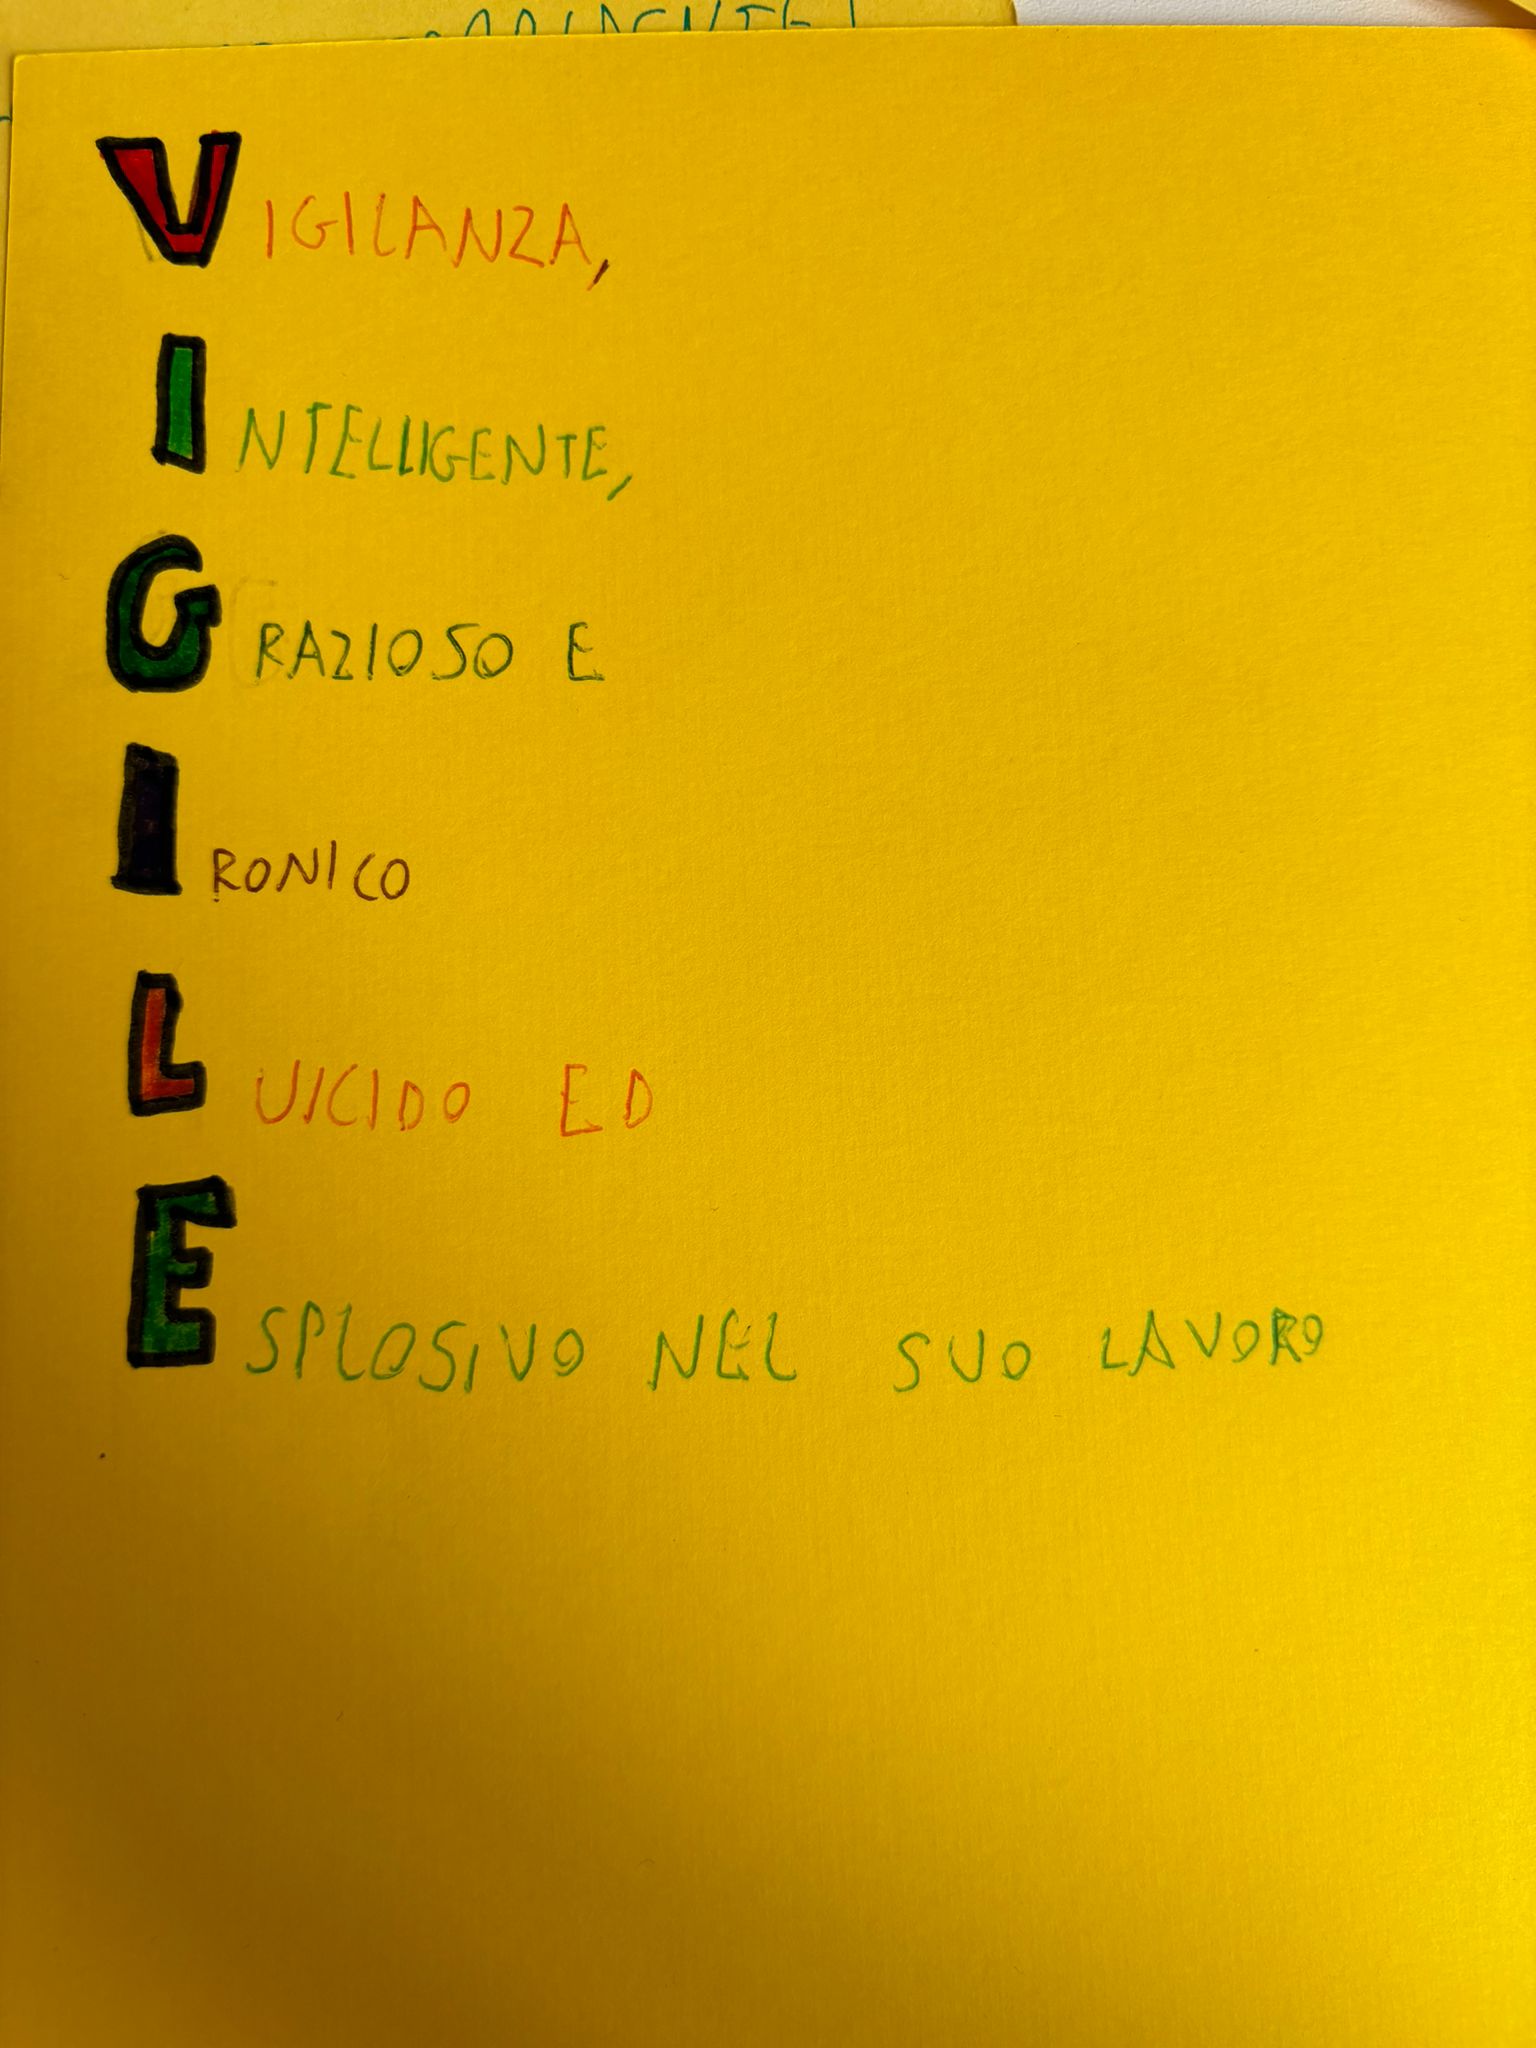 VIGILANZA,
INTELLIGENTE,
GRAZIOSO E
IRONICO
LUICIDO ED
ESPLOSIVO NEL SUO LAVORO